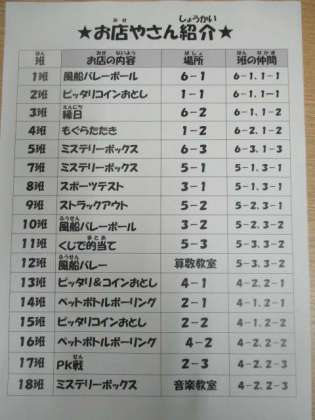 ★お店やさん紹介★
班 お店の内容 場所 班の仲間
1班 風船バレーボール 6-1 6-1、1-1
2班 ピッタリコインおとし 1-1 6-1、1-1
3班 縁日 6-1 6-1、1-2
4班 もぐらたたき 1-2 6-2、1-2
5班 ミステリーボックス 6-3 6-3、1-3
7班 ミステリーボックス 5-1 5-1、3-1
8班 スポーツテスト 3-1 5-1、3-1
9班 ストラックアウト 5-2 5-2、3-1
10班 風船バレーボール 3-2 5-2、3-2
11班 くじで的当て 5-3 5-3、3-2
12班 風船バレー 算数教室 5-3、3-2
13班 ピッタリ&コインおとし 4-1 4-2、2-1
14班 ペットボトルボーリング 2-1 4-1、2-1
15班 ピッタリコインおとし 2-2 4-1、2-2
16班 ペットボトルボーリング 4-2 4-2、2-2
17班 PK戦 2-3 4-2、2-3
18班 ミステリーボックス 音楽教室 4-2、2-3